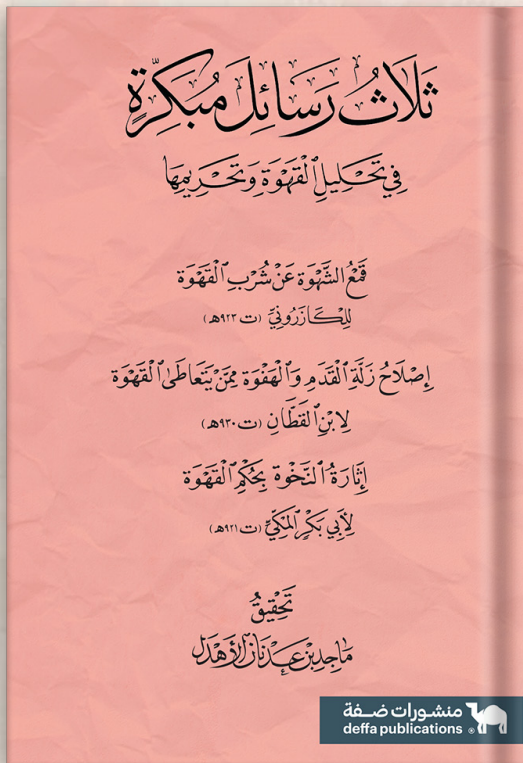 ثَلَاثُ رَسَائِلَ مُبَكِّرَةٍ
فِي تَحْلِيلِ ٱلْقَهْوَةِ وَتَحْرِيمِهَا
قَمْعُ الشَّهْوَة عَنْ شُرْبِ ٱلْقَهْوَة
لِلْكَازَرُونِيِّ (ت ٩٢٣هـ)
إِصْلَاحُ زَلَّةِ الْقَدَمِ وَٱلْهَفْوَة مِمَّنْ يَتَعَاطَى ٱلْقَهْوَة
لِابْنِ ٱلقَطَّانِ (ت ٩٣٠هـ)
إِثَارَةُ ٱلنَّخْوَة بِحُكْمِ ٱلْقَهْوَة
لِأَبِي بَكْرٍ ٱلمَكِّيِّ (ت ٩٢١هـ)
تَحْقِيقُ
مَاجِد بْن عَدْنَان ٱلأَهْدَل
منشورات ضفة
deffa publications ®